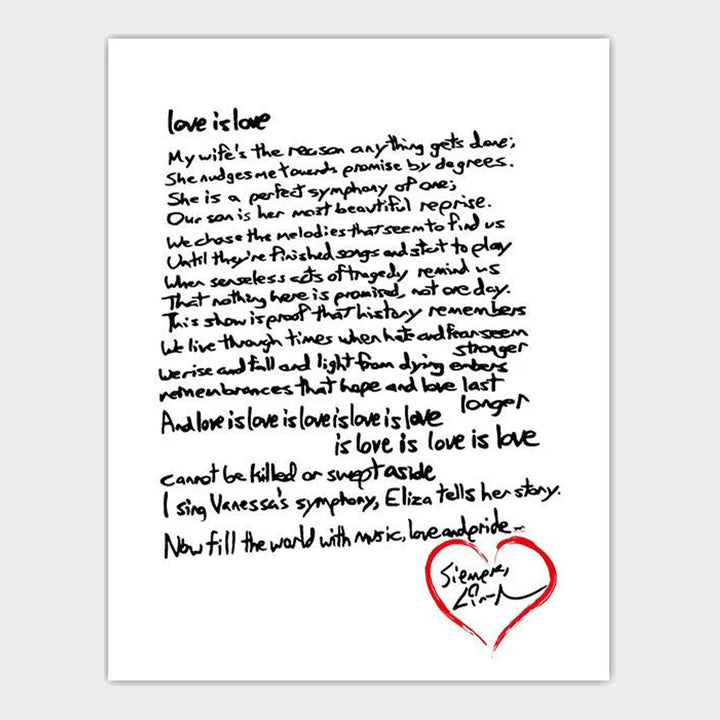 love is love
My wife's the reason anything gets done;
She nudges me towards promise by degrees.
She is a perfect symphony of one;
Our son is her most beautiful reprise.
We chase the melodies that seem to find us
Until they're finished songs and start to play
When senseless acts of tragedy remind us
That nothing here is promised, not one day.
This show is proof that history remembers
We live through times when hate and fear seem
stronger
We rise and fall and light from dying embers
remembrances that hope and love last
longer
And love is love is love is love is love
is love is love is love
cannot be killed or swept aside
I sing Vanessa's symphony, Eliza tells her story.
Now fill the world with music, love and pride...
Siempre,
Lin-M